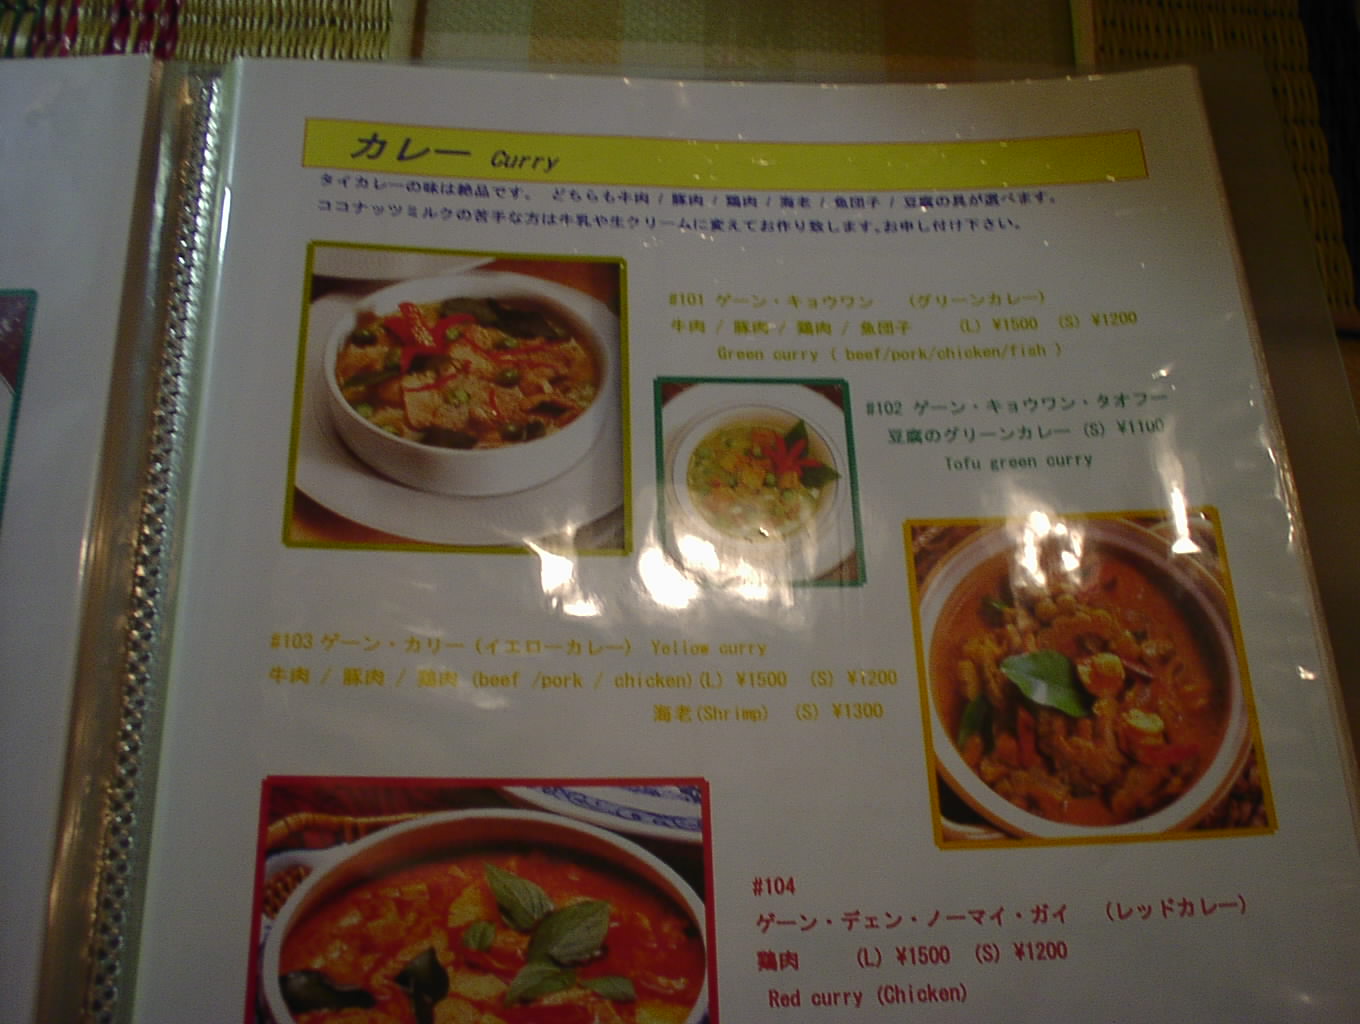 カレー Curry
タイカレーの味は絶品です。 どちらも牛肉 / 豚肉 / 鶏肉 / 海老 / 魚団子 / 豆腐の具が選べます。
ココナッツミルクの苦手な方は牛乳や生クリームに変えてお作り致します。お申し付け下さい。
#101 ゲーン・キョウワン (グリーンカレー)
牛肉 / 豚肉 / 鶏肉 / 魚団子 (L) ¥1500 (S) ¥1200
Green curry ( beef/pork/chicken/fish )
#102 ゲーン・キョウワン・タオフー
豆腐のグリーンカレー (S) ¥1100
Tofu green curry
#103 ゲーン・カリー (イエローカレー) Yellow curry
牛肉 / 豚肉 / 鶏肉 (beef /pork / chicken) (L) ¥1500 (S) ¥1200
海老(Shrimp) (S) ¥1300
#104
ゲーン・デェン・ノーマイ・ガイ (レッドカレー)
鶏肉 (L) ¥1500 (S) ¥1200
Red curry (Chicken)